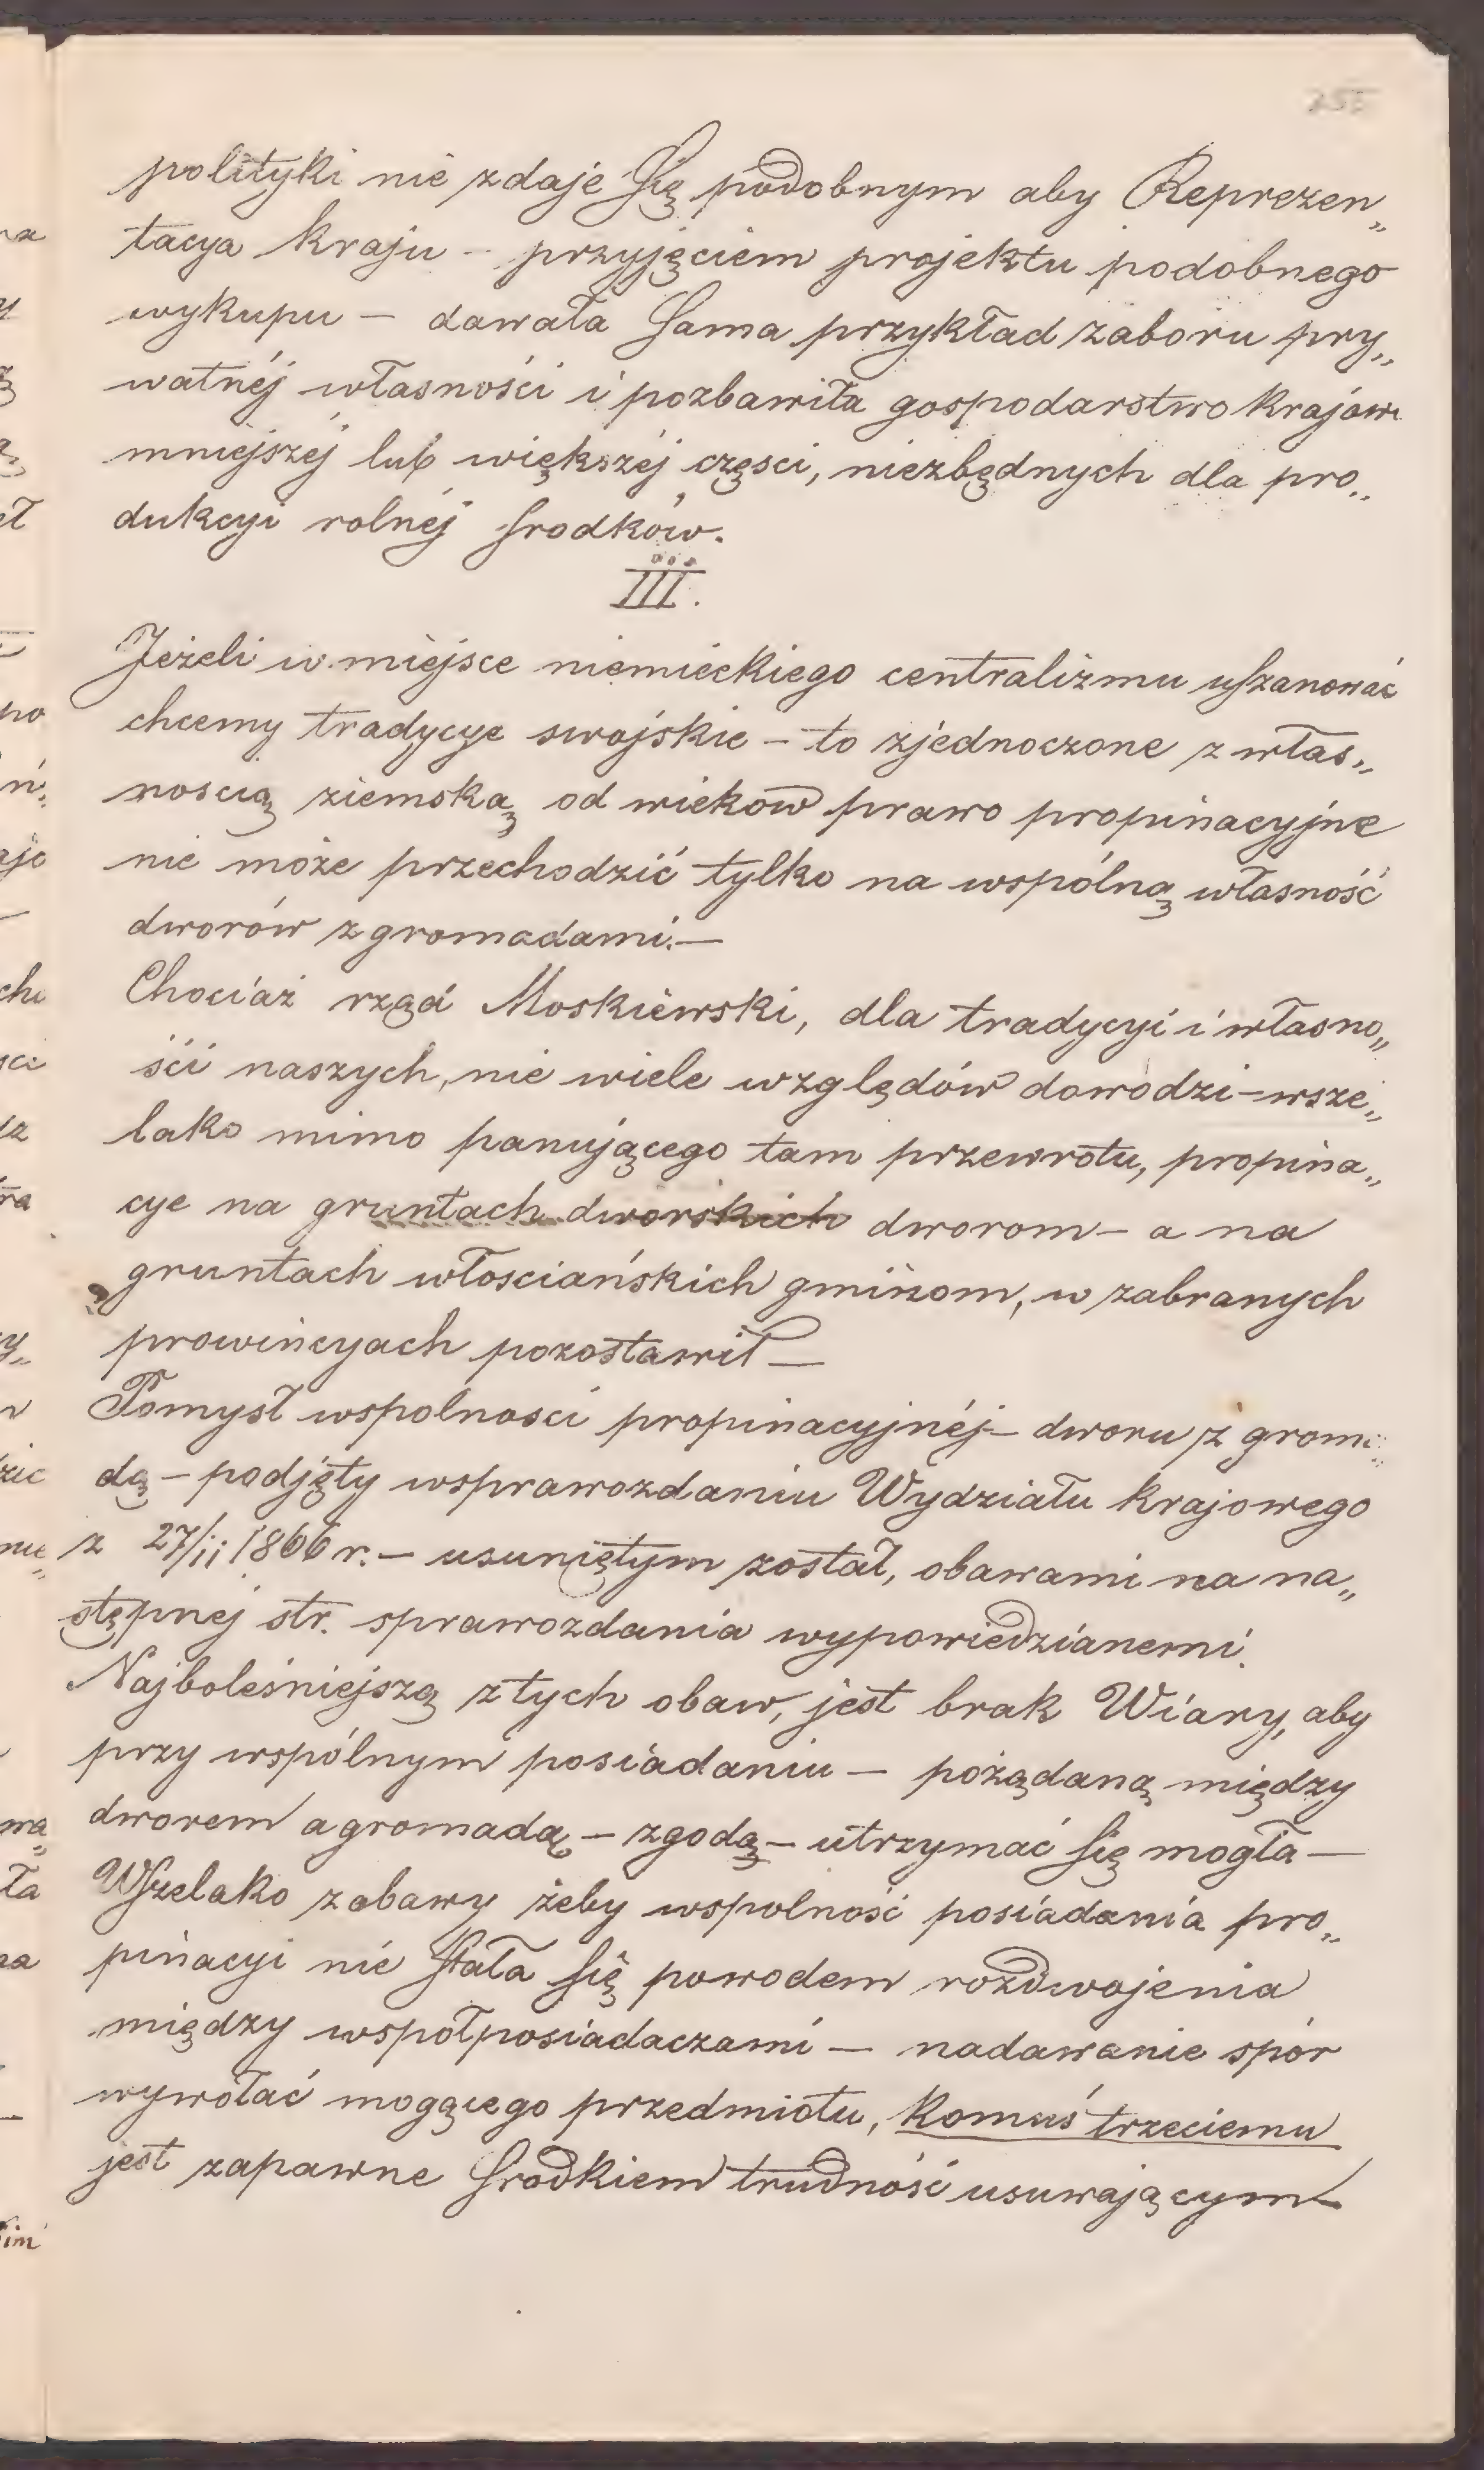 polityki nie zdaje się podobnym aby Reprezen„
tacya kraju - przyjęciem projektu podobnego
wykupu — dawała sama przykład zaboru pry„
watnéj własności i pozbawiła gospodarstwo krajow
mniejszéj lub większéj częsci, niezbędnych dla pro„
dukcyi rolnéj srodków.
III.
Jeżeli w miejsce niemieckiego centralizmu uszanować
chcemy tradycye swojskie — to zjednoczone z włas„
noscią ziemską od wieków prawo propinacyjne
nie może przechodzić tylko na wspólną własność
dworów z gromadami. —
Chociaż rząd Moskiewski, dla tradycyi i własno„
ści naszych, nie wiele względów dowodzi — wsze„
lako mimo panującego tam przewrotu, propina„
cye na gruntach dworskich dworom — a na
gruntach włosciańskich gminom, w zabranych
prowincyach pozostawił —
Pomysł wspolnosci propinacyjnéj — dworu z grom
dą — podjęty wsprawozdaniu Wydziału krajowego
z 27/11 1866 r. — usuniętym został, obawami na na„
stępnej str. sprawozdania wypowiedzianemi.
Najboleśniejszą z tych obaw, jest brak Wiary, aby
przy wspólnym posiadaniu — pożądaną między
dworem a gromadą — zgodą — utrzymać się mogła —
Wszelako z obawy żeby wspolność posiadania pro„
pinacyi nie stała się powodem rozdwojenia
między wspołposiadaczami — nadawanie spór
wywołać mogącego przedmiotu, komuś trzeciemu
jest zapawne srodkiem trudność usuwającym —